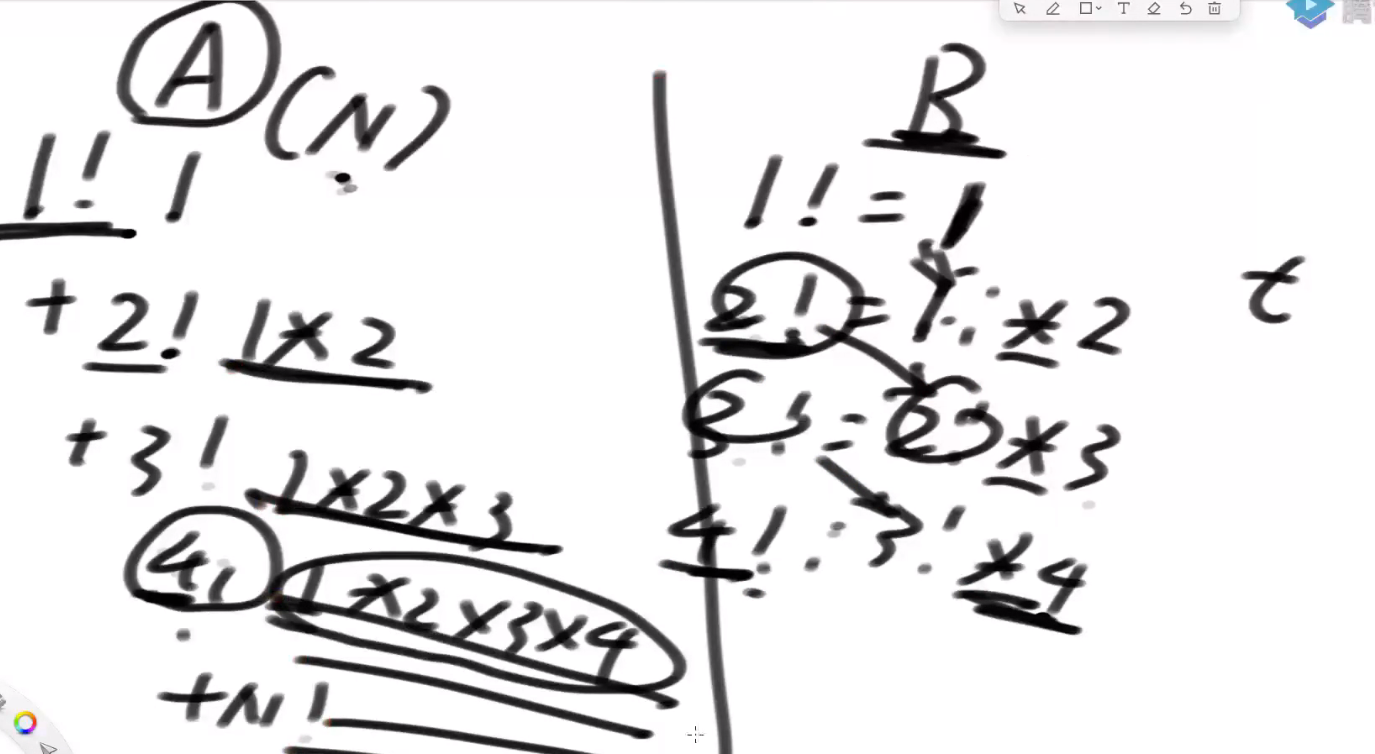 A (N)
1! 1
+ 2! 1×2
+ 3! 1×2×3
4! 1×2×3×4
+N!
B
1! = 1
2! = 1! ×2
3! = 2! ×3
4! = 3! ×4
t